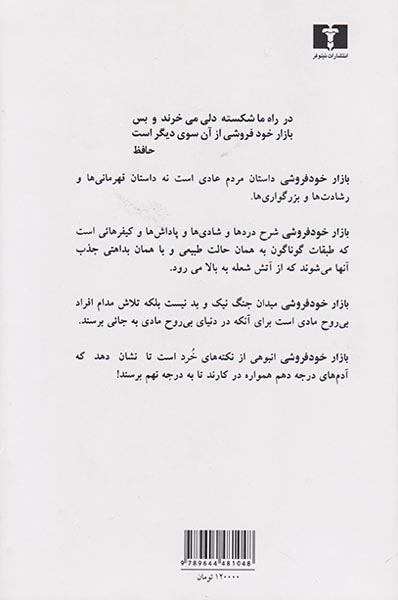 انتشارات نیلوفر
در راه ما شکسته دلی می خرند و بس
بازار خود فروشی از آن سوی دیگر است
حافظ
بازار خودفروشی داستان مردم عادی است نه داستان قهرمانی‌ها و
رشادت‌ها و بزرگواری‌ها.
بازار خودفروشی شرح دردها و شادی‌ها و پاداش‌ها و کیفرهائی است
که طبقات گوناگون به همان حالت طبیعی و با همان بداهتی جذب
آنها می‌شوند که از آتش شعله به بالا می رود.
بازار خودفروشی میدان جنگ نیک و بد نیست بلکه تلاش مدام افراد
بی‌روح مادی است برای آنکه در دنیای بی‌روح مادی به جائی برسند.
بازار خودفروشی انبوهی از نکته‌های خُرد است تا نشان دهد که
آدم‌های درجه دهم همواره در کارند تا به درجه نهم برسند!
9 789644 481048
۱۲۰۰۰۰ تومان